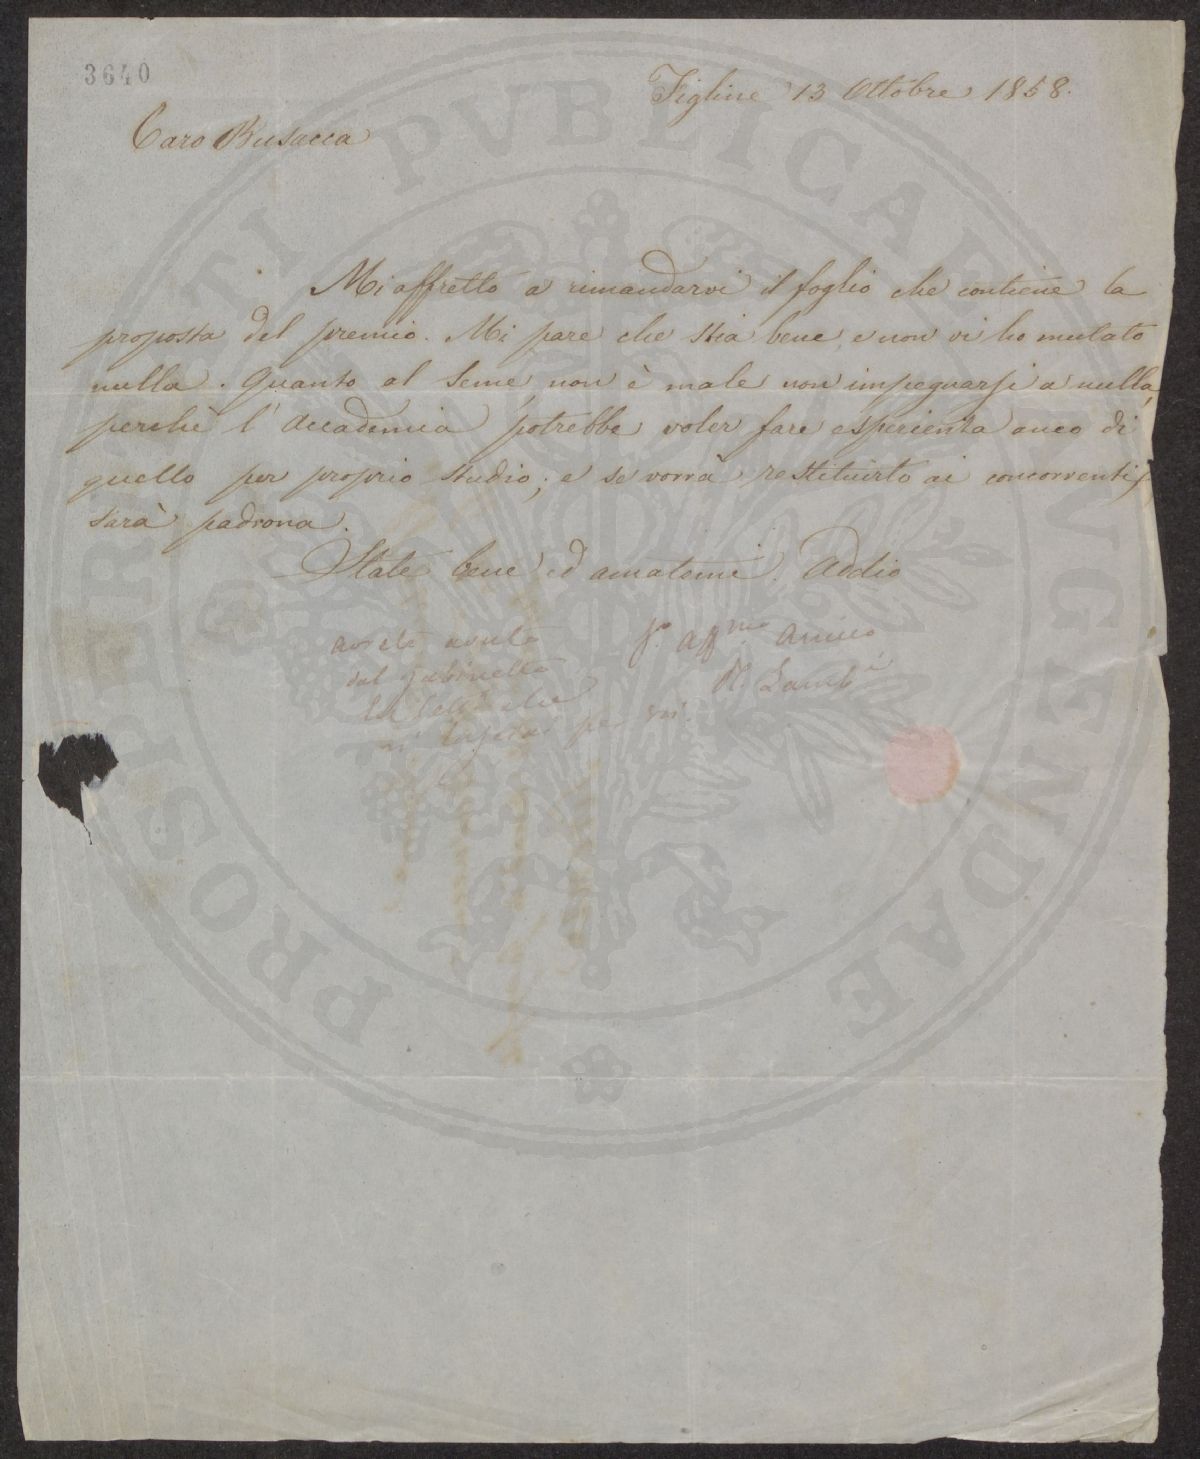 3640
Figline 13 Ottobre 1858.
Caro Busacca
Mi affretto a rimandarvi il foglio che contiene la
proposta del premio. Mi pare che stia bene, e non vi ho mutato
nulla. Quanto al seme, non è male non impegnarsi a nulla,
perchè l'Accademia potrebbe voler fare esperienza anco di
quello per proprio studio; e se vorrà restituirlo ai concorrenti,
sarà padrona.
State bene ed amatemi. Addio
avrete avuta
dal gabinetto
che
vi lasciai per voi.
aff.mo Amico
R. Lamb.i
PROSPERITATI PVBLICAE AVGENDAE